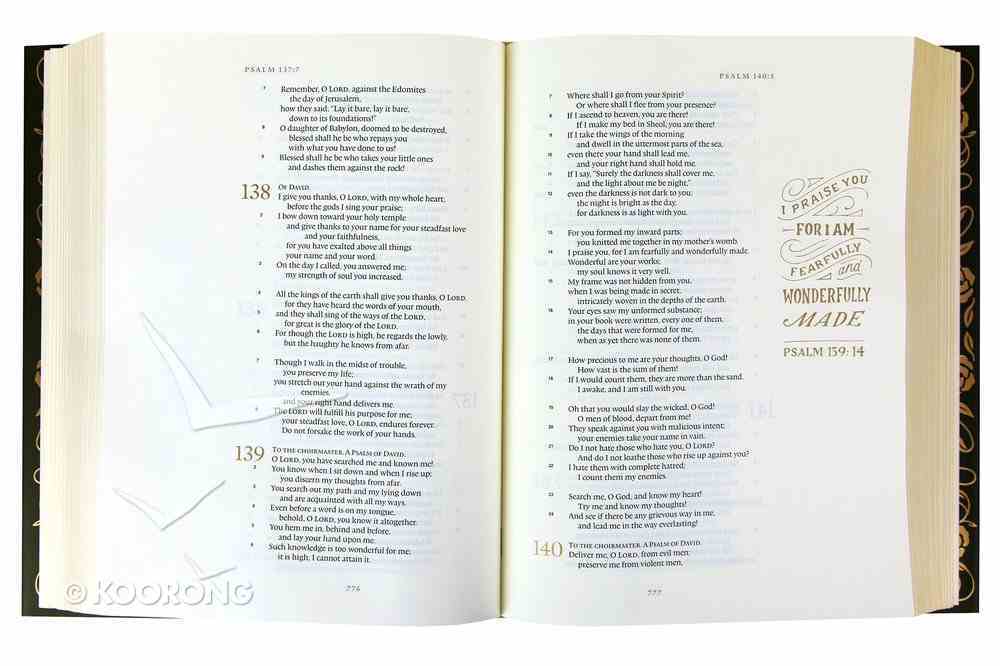 PSALM 137:7
7 Remember, O LORD, against the Edomites
the day of Jerusalem,
how they said, “Lay it bare, lay it bare,
down to its foundations!”
8 O daughter of Babylon, doomed to be destroyed,
blessed shall he be who repays you
with what you have done to us!
9 Blessed shall he be who takes your little ones
and dashes them against the rock!
138 OF DAVID.
I give you thanks, O LORD, with my whole heart;
before the gods I sing your praise;
2 I bow down toward your holy temple
and give thanks to your name for your steadfast love
and your faithfulness,
for you have exalted above all things
your name and your word.
3 On the day I called, you answered me;
my strength of soul you increased.
4 All the kings of the earth shall give you thanks, O LORD,
for they have heard the words of your mouth,
5 and they shall sing of the ways of the LORD,
for great is the glory of the LORD.
6 For though the LORD is high, he regards the lowly,
but the haughty he knows from afar.
7 Though I walk in the midst of trouble,
you preserve my life;
you stretch out your hand against the wrath of my
enemies,
and your right hand delivers me.
8 The LORD will fulfill his purpose for me;
your steadfast love, O LORD, endures forever.
Do not forsake the work of your hands.
139 TO THE CHOIRMASTER. A PSALM OF DAVID.
O LORD, you have searched me and known me!
2 You know when I sit down and when I rise up;
you discern my thoughts from afar.
3 You search out my path and my lying down
and are acquainted with all my ways.
4 Even before a word is on my tongue,
behold, O LORD, you know it altogether.
5 You hem me in, behind and before,
and lay your hand upon me.
6 Such knowledge is too wonderful for me;
it is high; I cannot attain it.
776
© KOORONG
PSALM 140:1
7 Where shall I go from your Spirit?
Or where shall I flee from your presence?
8 If I ascend to heaven, you are there!
If I make my bed in Sheol, you are there!
9 If I take the wings of the morning
and dwell in the uttermost parts of the sea,
10 even there your hand shall lead me,
and your right hand shall hold me.
11 If I say, “Surely the darkness shall cover me,
and the light about me be night,”
12 even the darkness is not dark to you;
the night is bright as the day,
for darkness is as light with you.
13 For you formed my inward parts;
you knitted me together in my mother’s womb.
14 I praise you, for I am fearfully and wonderfully made.
Wonderful are your works;
my soul knows it very well.
15 My frame was not hidden from you,
when I was being made in secret,
intricately woven in the depths of the earth.
16 Your eyes saw my unformed substance;
in your book were written, every one of them,
the days that were formed for me,
when as yet there was none of them.
17 How precious to me are your thoughts, O God!
How vast is the sum of them!
18 If I would count them, they are more than the sand.
I awake, and I am still with you.
19 Oh that you would slay the wicked, O God!
O men of blood, depart from me!
20 They speak against you with malicious intent;
your enemies take your name in vain.
21 Do I not hate those who hate you, O LORD?
And do I not loathe those who rise up against you?
22 I hate them with complete hatred;
I count them my enemies.
23 Search me, O God, and know my heart!
Try me and know my thoughts!
24 And see if there be any grievous way in me,
and lead me in the way everlasting!
140 TO THE CHOIRMASTER. A PSALM OF DAVID.
Deliver me, O LORD, from evil men;
preserve me from violent men,
777
I PRAISE YOU
FOR I AM
FEARFULLY
and
WONDERFULLY
MADE
PSALM 139:14